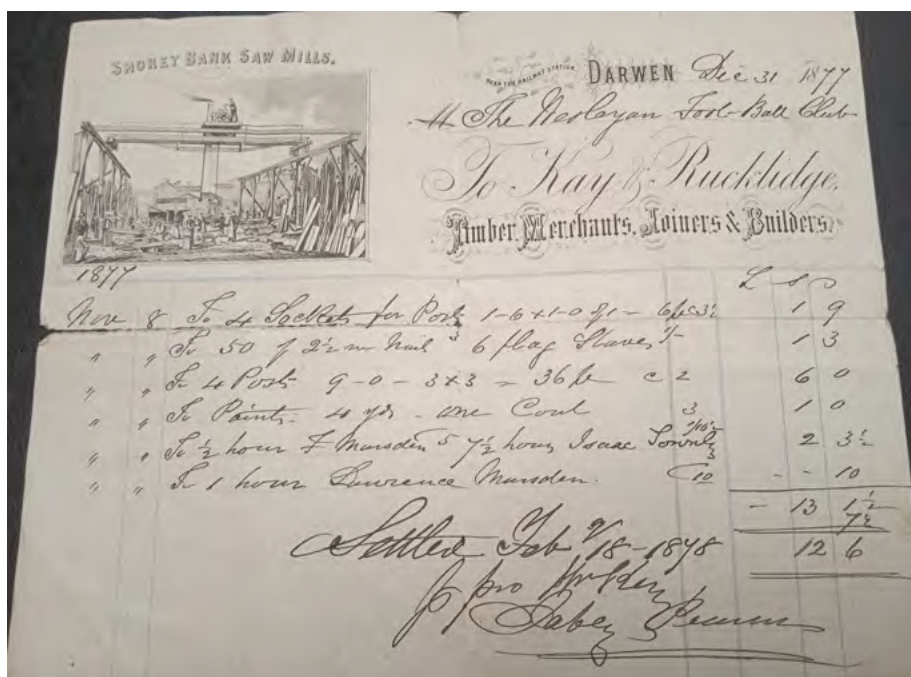 SMOREY BANK SAW MILLS.
NEAR THE RAILWAY STATION,
DARWEN Dec 31 1877
The Wesleyan Foot Ball Club
To Kay & Rucklidge,
Timber Merchants, Joiners & Builders,
1877
£ s D
Nov 8 To 4 Sockets for Posts 1-6 x 1-0 1 9
" " To 50 of 2½ in Nails 3 6 flag Staves 1/- 1 3
" " To 4 Posts 9-0 - 3x3 = 36 c 2 6 0
" " To Paint 4 yds - one Coat 3 1 0
" " To ½ hour F Marsden 5 7½ hours Isaac 2 3½
" " To 1 hour Lawrence Marsden. 10 - - 10
- 13 1½
7½
12 6
Settled Feb 9/18-1878
p pro